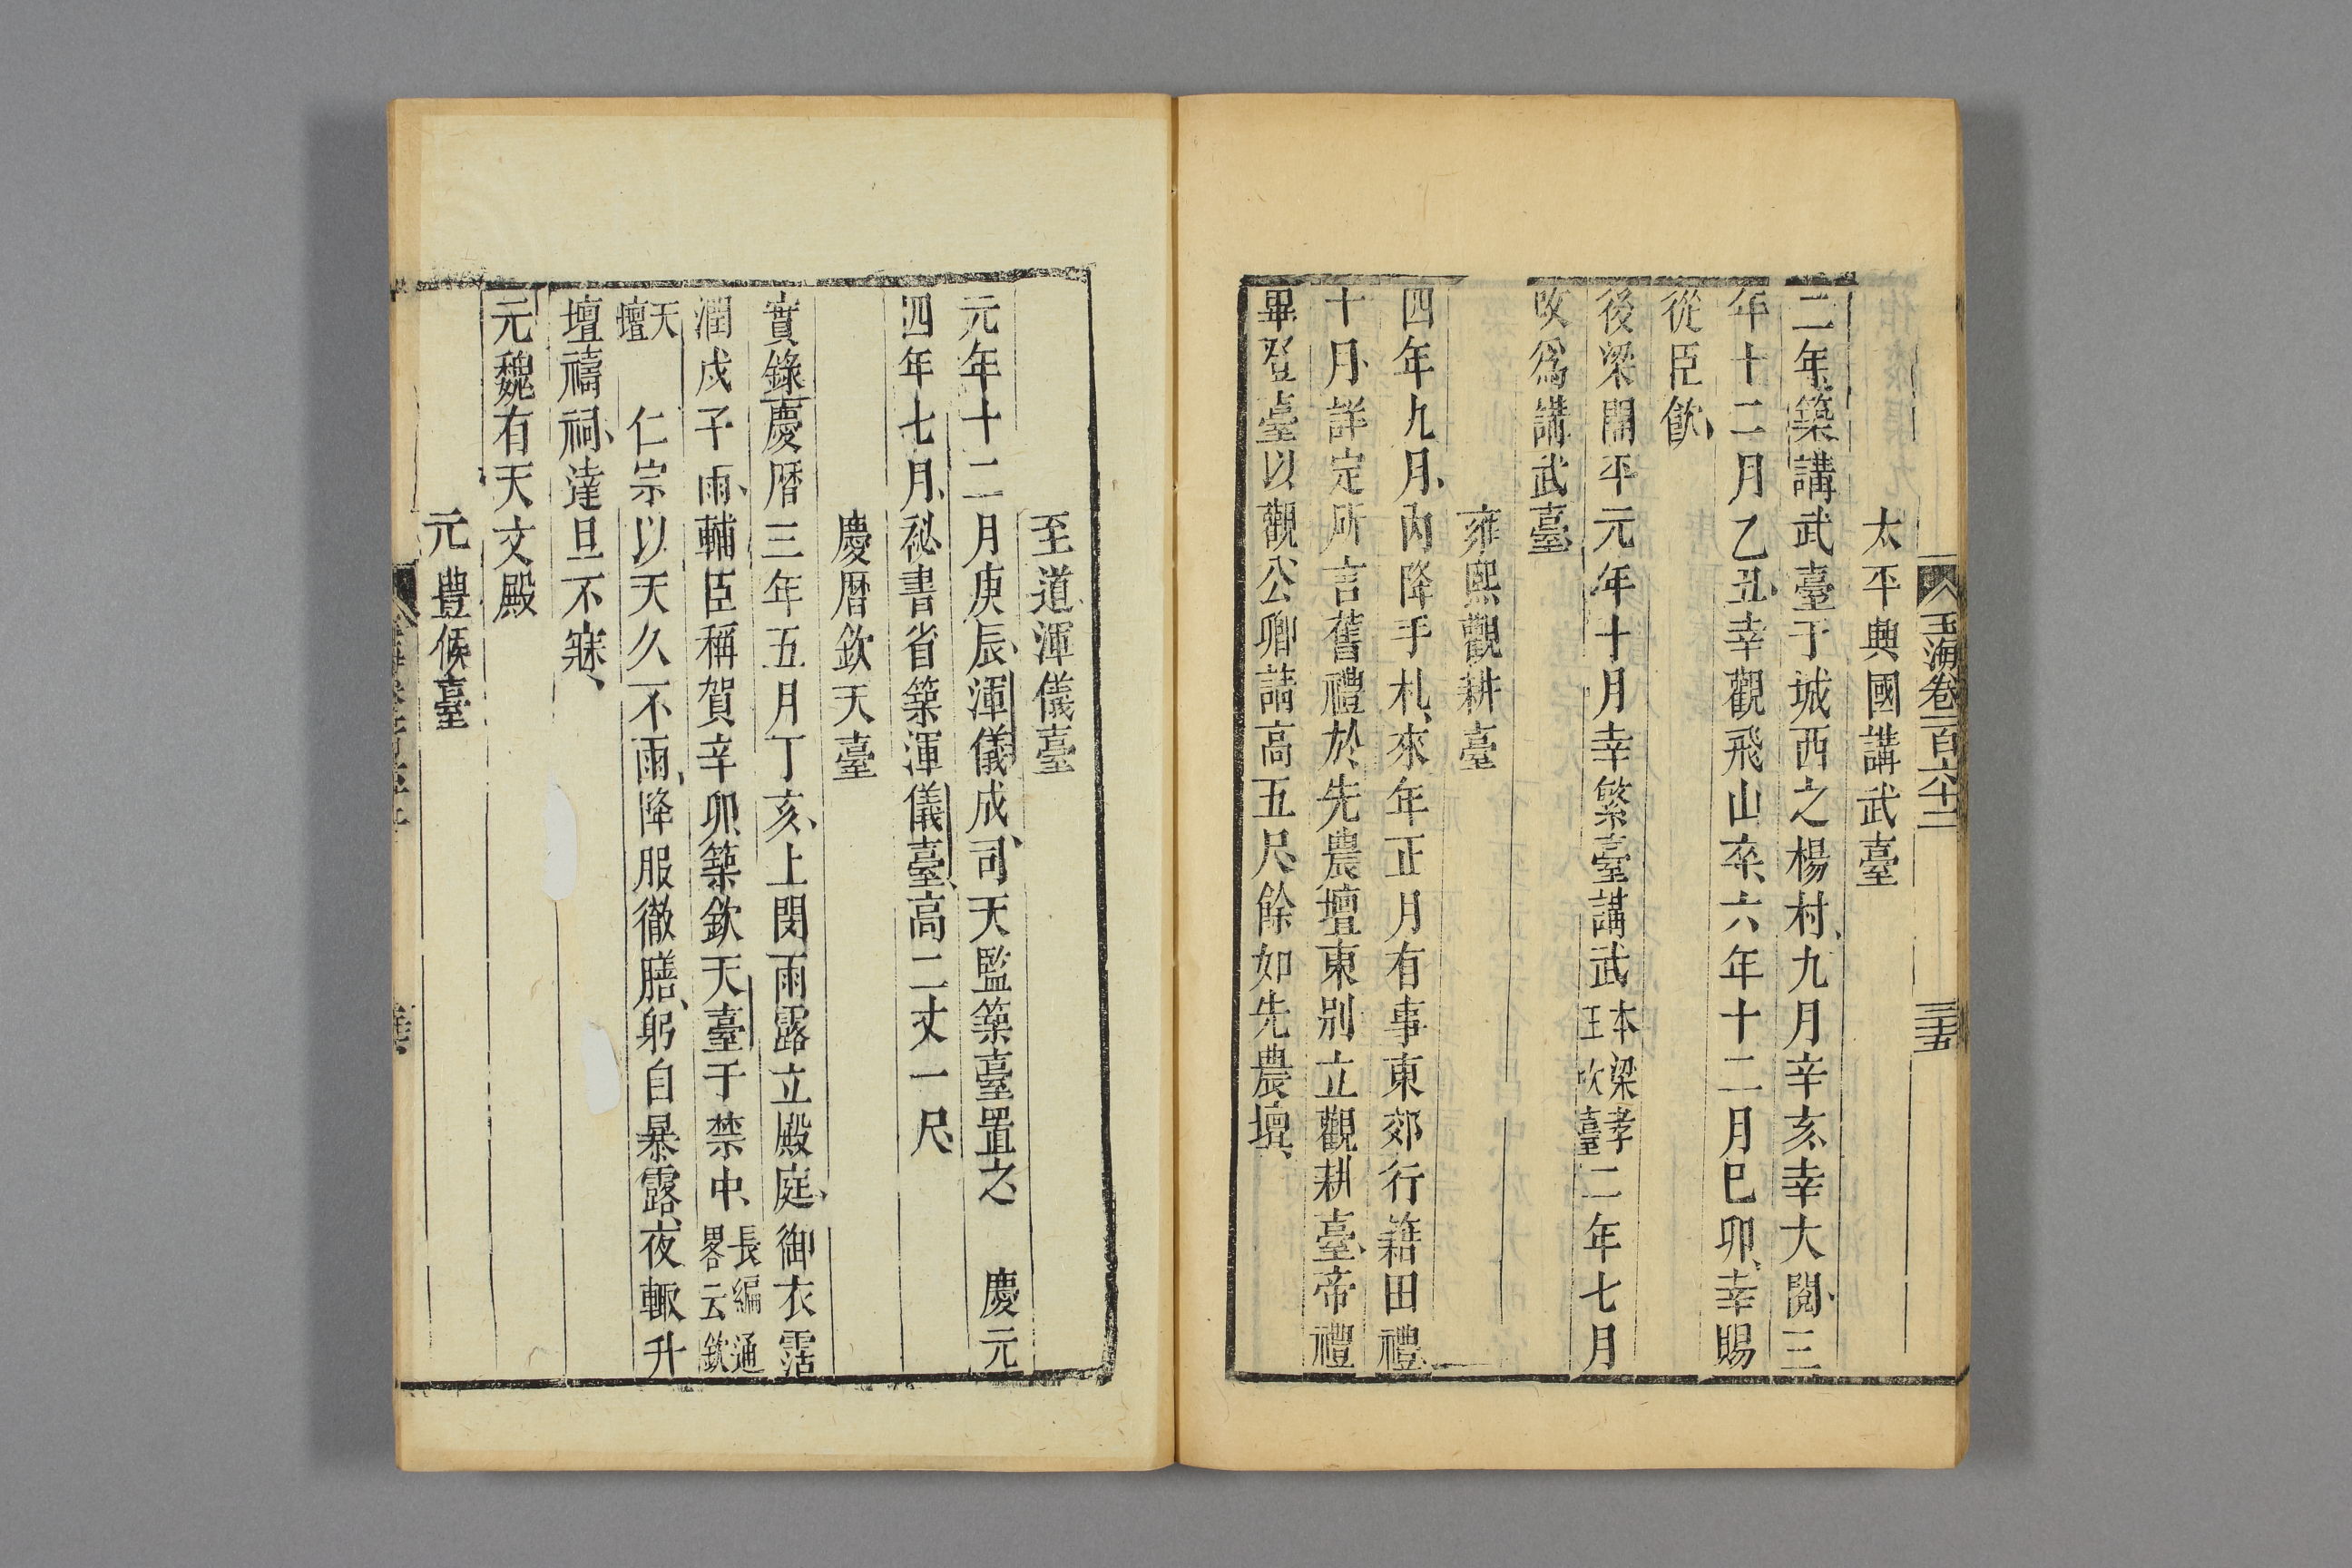 玉海卷一百六十二
三五
太平興國講武臺
二年築講武臺于城西之楊村九月辛亥幸大閱三
年十二月乙丑幸觀飛山卒六年十二月巳卯幸賜
從臣飲
後梁開平元年十月幸繁臺講武本梁孝王吹臺二年七月
攺爲講武臺
雍熙觀耕臺
四年九月內降手札來年正月有事東郊行籍田禮
十月詳定所言舊禮於先農壇東別立觀耕臺帝禮
畢登臺以觀公卿請高五尺餘如先農壇
至道渾儀臺
元年十二月庚辰渾儀成司天監築臺置之 慶元
四年七月祕書省築渾儀臺高二丈一尺
慶曆欽天臺
實錄慶曆三年五月丁亥上閔雨露立殿庭御衣霑
潤戊子雨輔臣稱賀辛卯築欽天臺于禁中長編通畧云欽
天壇 仁宗以天久不雨降服徹膳躬自暴露夜輙升
壇禱祠達旦不寐
元魏有天文殿
元豊候臺